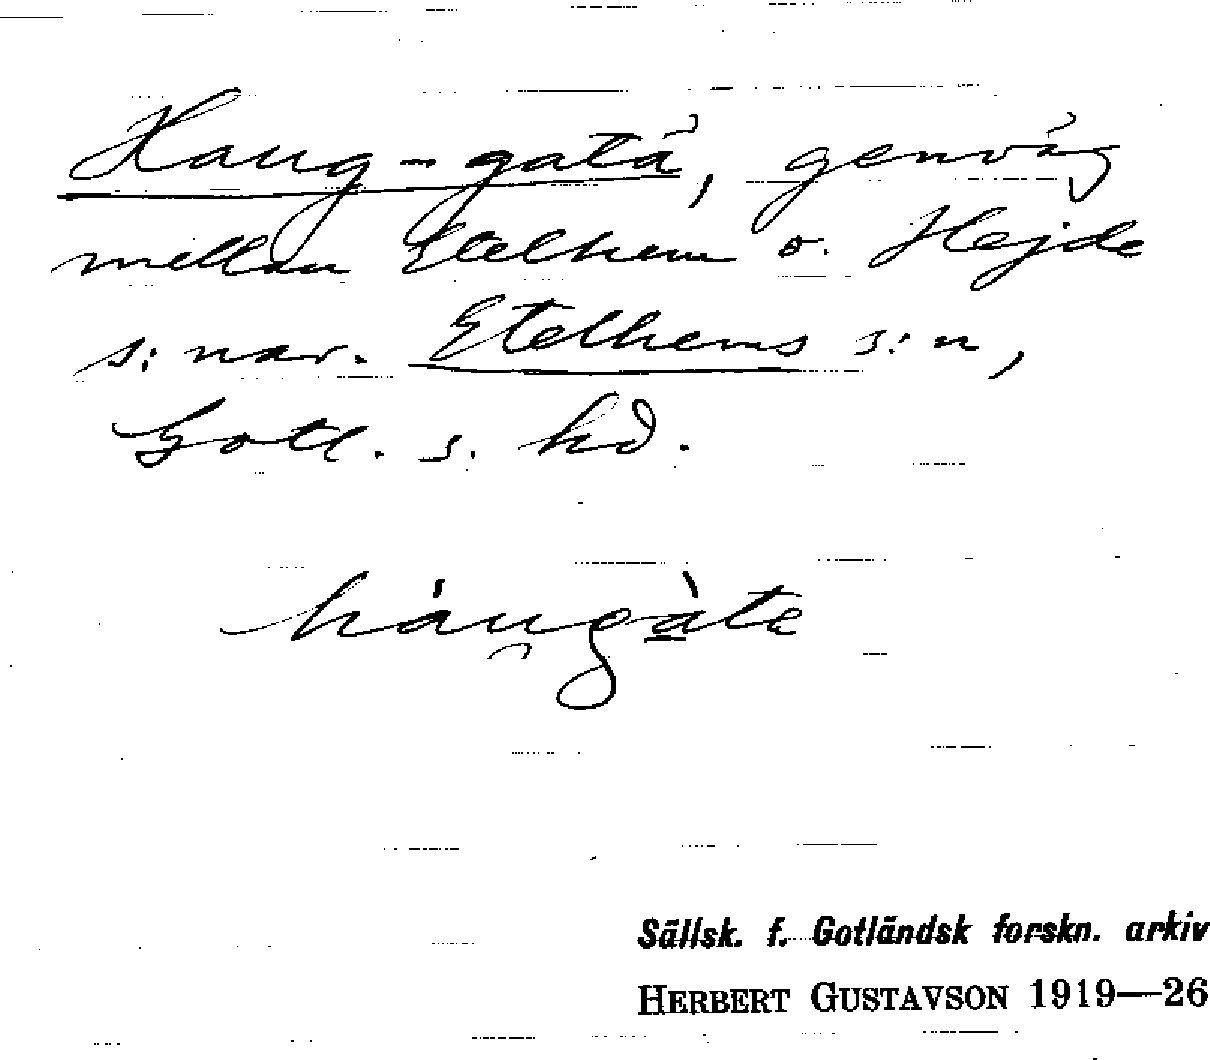 Haug-gatå, genväg
mellan Etelhem o. Hejde
s:nar. Etelhems s:n,
Gotl. s. hd.
háu̯gà̱te
Sällsk. f. Gotländsk forskn. arkiv
HERBERT GUSTAVSON 1919—26